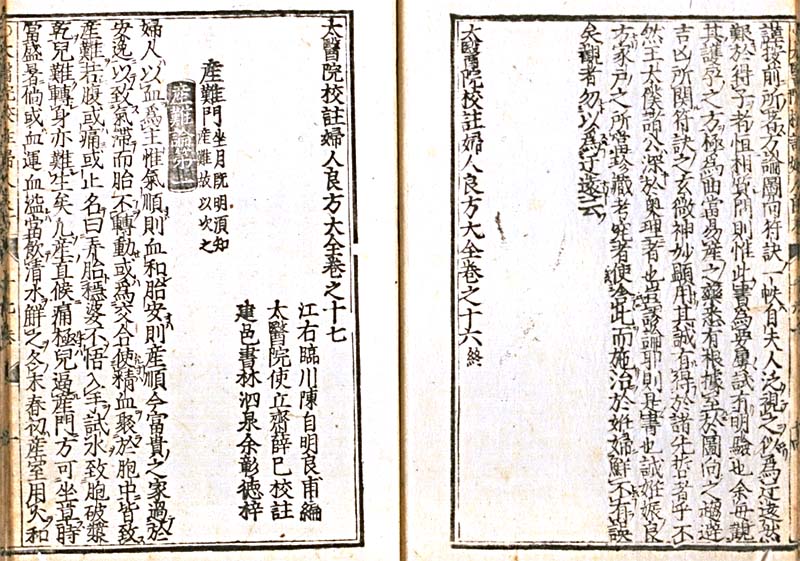 謹按前所著方論圖而符訣一帙自夫人泛視之似為迂遠然
艱於得子者恒相質問則惟此書為要屢試有明驗也余毋觀
其護孕之方極為曲當易產之藥悉有根據至於圖向之趨避
吉凶所關符訣之玄微神妙顯用其誠有得於諸先哲者乎不
然王太僕諸公深於奧理者也豈談耶則是書也誠姙娠良
方家戶之所當珍藏者 者使舍此而施治於姙婦鮮不有誤
矣觀者勿以為迂遠云
太醫院校註婦人良方大全卷之十六終
太醫院校註婦人良方大全卷之十七
江右臨川陳自明良甫編
太醫院使立齋薛已校註
建邑書林泗泉余彰德梓
產難門坐月既明須知產難故以次之
產難論第一
婦人以血為主惟氣順則血和胎安則產順今富貴之家過於
安逸以致氣滯而胎不轉動或為交合使精血聚於胞中皆致
產難若腹或痛或止名曰弄胎穩婆不悟入手試水致胞破漿
乾兒難轉身亦難生矣凡產直候痛極兒逼產門方可坐草時
當盛暑倘或血運血溢當飲清水鮮之冬末春初產室用火和